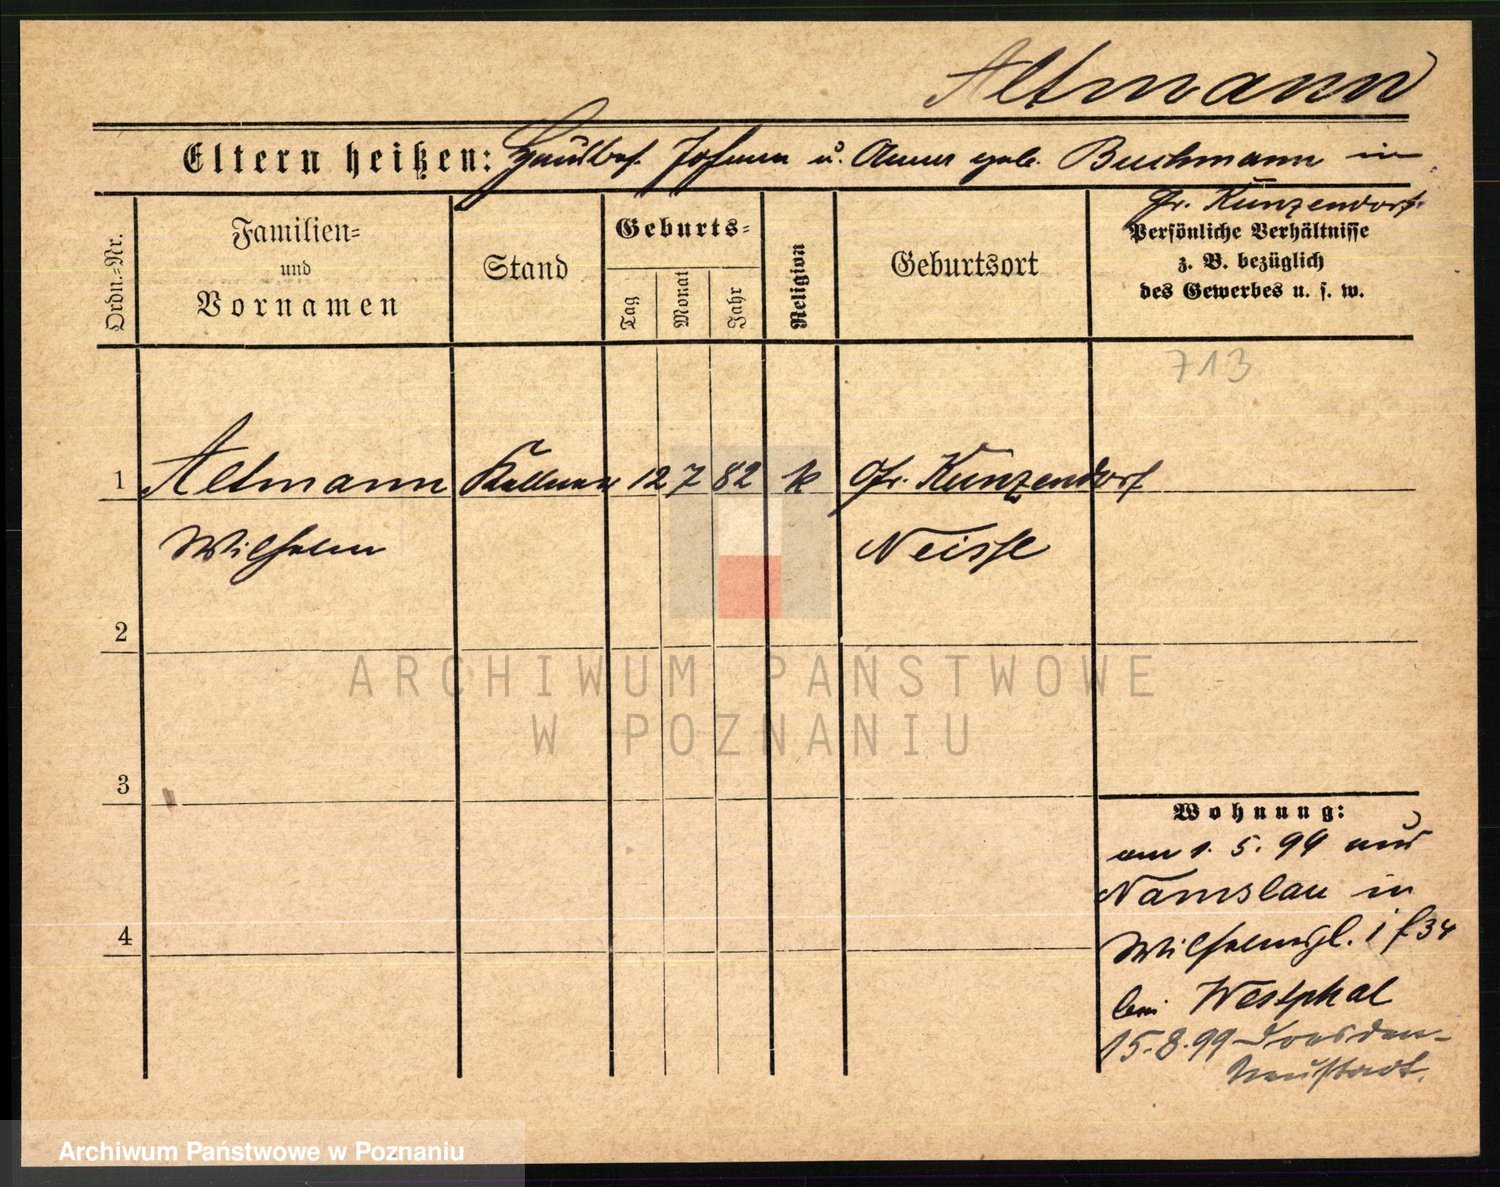 Altmann
Eltern heißen: Hausbes. Johann u. Anna geb. Buchmann in
Gr. Kunzendorf
Ordn.=Nr.
Familien=
und
Vornamen
Stand
Geburts=
Tag
Monat
Jahr
Religion
Geburtsort
Persönliche Verhältnisse
z. B. bezüglich
des Gewerbes u. s. w.
713
1 Altmann Kellner 12 7 82 k Gr. Kunzendorf
Wilhelm Neisse
2
ARCHIWUM PAŃSTWOWE
W POZNANIU
3
Wohnung:
am 1. 5. 99 aus
Namslau in
4
34
bei Westphal
15. 8. 99 Dresden-
Neustadt.
Archiwum Państwowe w Poznaniu